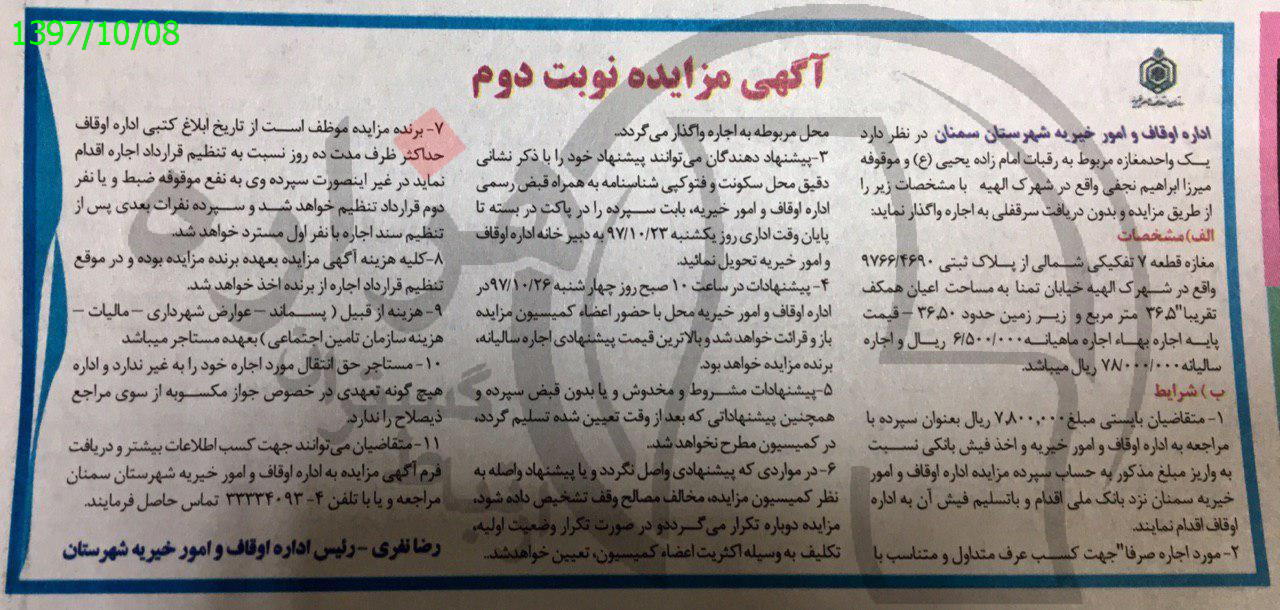 1397/10/08
آگهی مزایده نوبت دوم
اداره اوقاف و امور خیریه شهرستان سمنان در نظر دارد
یک واحدمغازه مربوط به رقبات امام زاده یحیی (ع) و موقوفه
میرزا ابراهیم نجفی واقع در شهرک الهیه با مشخصات زیر را
از طریق مزایده و بدون دریافت سرقفلی به اجاره واگذار نماید:
الف) مشخصات
مغازه قطعه ۷ تفکیکی شمالی از پلاک ثبتی ۹۷۶۶/۴۶۹۰
واقع در شهرک الهیه خیابان تمنا به مساحت اعیان همکف
تقریبا"۳۶.۵ متر مربع و زیر زمین حدود ۳۶.۵۰ – قیمت
پایه اجاره بهاء اجاره ماهیانه ۶/۵۰۰/۰۰۰ ریال و اجاره
سالیانه ۷۸/۰۰۰/۰۰۰ ریال میباشد.
ب) شرایط
۱- متقاضیان بایستی مبلغ ۷,۸۰۰,۰۰۰ ریال بعنوان سپرده با
مراجعه به اداره اوقاف و امور خیریه و اخذ فیش بانکی نسبت
به واریز مبلغ مذکور به حساب سپرده مزایده اداره اوقاف و امور
خیریه سمنان نزد بانک ملی اقدام و باتسلیم فیش آن به اداره
اوقاف اقدام نمایند.
۲- مورد اجاره صرفا"جهت کسب عرف متداول و متناسب با
محل مربوطه به اجاره واگذار می‌گردد.
۳-پیشنهاد دهندگان می‌توانند پیشنهاد خود را با ذکر نشانی
دقیق محل سکونت و فتوکپی شناسنامه به همراه قبض رسمی
اداره اوقاف و امور خیریه، بابت سپرده را در پاکت در بسته تا
پایان وقت اداری روز یکشنبه ۹۷/۱۰/۲۳ به دبیر خانه اداره اوقاف
و امور خیریه تحویل نمائید.
۴- پیشنهادات در ساعت ۱۰ صبح روز چهار شنبه ۹۷/۱۰/۲۶در
اداره اوقاف و امور خیریه محل با حضور اعضاء کمیسیون مزایده
باز و قرائت خواهد شد و بالاترین قیمت پیشنهادی اجاره سالیانه،
برنده مزایده خواهد بود.
۵-پیشنهادات مشروط و مخدوش و یا بدون قبض سپرده و
همچنین پیشنهاداتی که بعد از وقت تعیین شده تسلیم گردد،
در کمیسیون مطرح نخواهد شد.
۶- در مواردی که پیشنهادی واصل نگردد و یا پیشنهاد واصله به
نظر کمیسیون مزایده، مخالف مصالح وقف تشخیص داده شود،
مزایده دوباره تکرار می‌گرددو در صورت تکرار وضعیت اولیه،
تکلیف به وسیله اکثریت اعضاء کمیسیون، تعیین خواهدشد.
۷- برنده مزایده موظف است از تاریخ ابلاغ کتبی اداره اوقاف
حداکثر ظرف مدت ده روز نسبت به تنظیم قرارداد اجاره اقدام
نماید در غیر اینصورت سپرده وی به نفع موقوفه ضبط و یا نفر
دوم قرارداد تنظیم خواهد شد و سپرده نفرات بعدی پس از
تنظیم سند اجاره با نفر اول مسترد خواهد شد.
۸-کلیه هزینه آگهی مزایده بعهده برنده مزایده بوده و در موقع
تنظیم قرارداد اجاره از برنده اخذ خواهد شد.
۹- هزینه از قبیل ( پسماند – عوارض شهرداری – مالیات –
هزینه سازمان تامین اجتماعی ) بعهده مستاجر میباشد
۱۰- مستاجر حق انتقال مورد اجاره خود را به غیر ندارد و اداره
هیچ گونه تعهدی در خصوص جواز مکسوبه از سوی مراجع
ذیصلاح را ندارد.
۱۱- متقاضیان می‌توانند جهت کسب اطلاعات بیشتر و دریافت
فرم آگهی مزایده به اداره اوقاف و امور خیریه شهرستان سمنان
مراجعه و یا با تلفن ۴- ۳۳۳۳۴۰۹۳ تماس حاصل فرمایند.
رضا نفری – رئیس اداره اوقاف و امور خیریه شهرستان